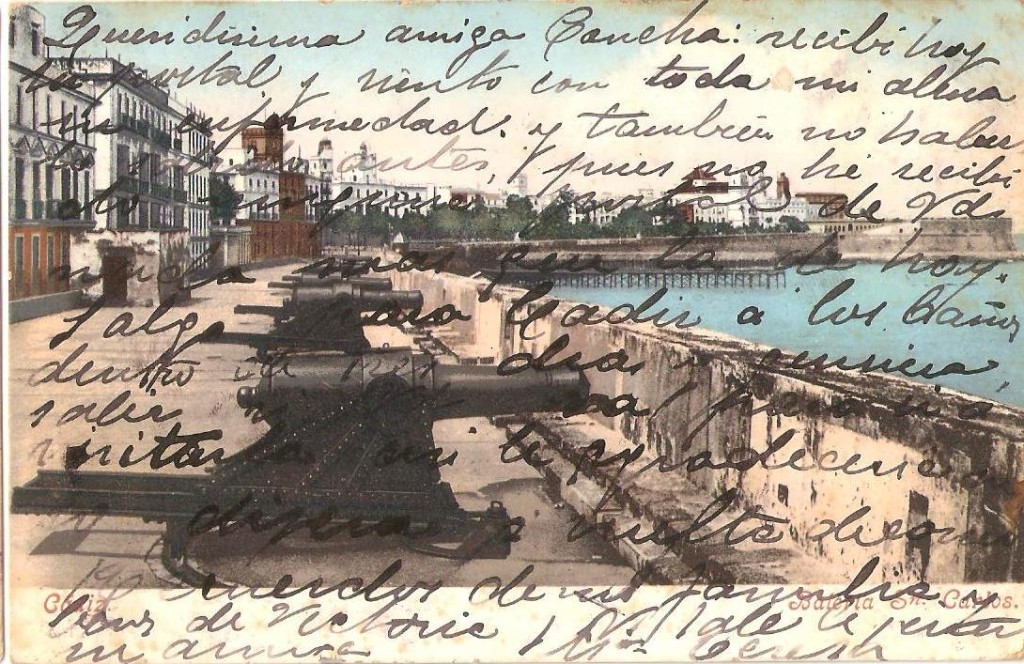 Queridisima amiga Concha: recibi hoy
tu postal y siento con toda mi alma
su enfermedad. y tambien no haber
antes, pues no he recibi
do ninguna postal de Vds
nunca mas que la de hoy.
Salgo para Cadiz a los baños
dentro de tres dias y quisiera
saber para ir a
visitarla
dijera a vuelta de
recuerdos de mi familia y
de Victoria
su amiga
Cádiz.
Batería Sn. Carlos.